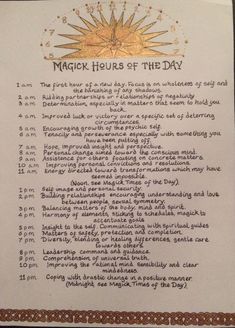 MAGICK HOURS OF THE DAY
1 am The first hour of a new day. Focus is on wholeness of self and
the banishing of any shadows.
2 am Aiding partnerships or relationships of negativity
3 am Determination, especially in matters that seem to hold you
back.
4 am Improved luck or victory over a specific set of deterring
circumstances.
5 am Encouraging growth of the psychic self.
6 am Tenacity and perseverance especially with something you
have been putting off.
7 am Hope, improved insight and perspective.
8 am Personal change aimed toward the conscious mind.
9 am Assistance for others focusing on concrete matters.
10 am Improving personal convictions and resolutions.
11 am Energy directed toward transformations which may have
seemed impossible.
(Noon, see Magick Times of the Day)
1 pm Self image and personal security.
2 pm Building relationships encouraging understanding and love
between people, sexual symmetry.
3 pm Balancing matters of the body, mind and spirit.
4 pm Harmony of elements, sticking to schedules, magick to
accentuate goals
5 pm Insight to the self. Communicating with spiritual guides
6 pm Matters of safety, protection and completion
7 pm Diversity, blending or healing differences, gentle care
towards others.
8 pm Leadership, command and guidance.
9 pm Comprehension of universal truth.
10 pm Improving the rational mind, sensibility and clear
mindedness.
11 pm Coping with drastic change in a positive manner.
(Midnight see Magick Times of the Day)